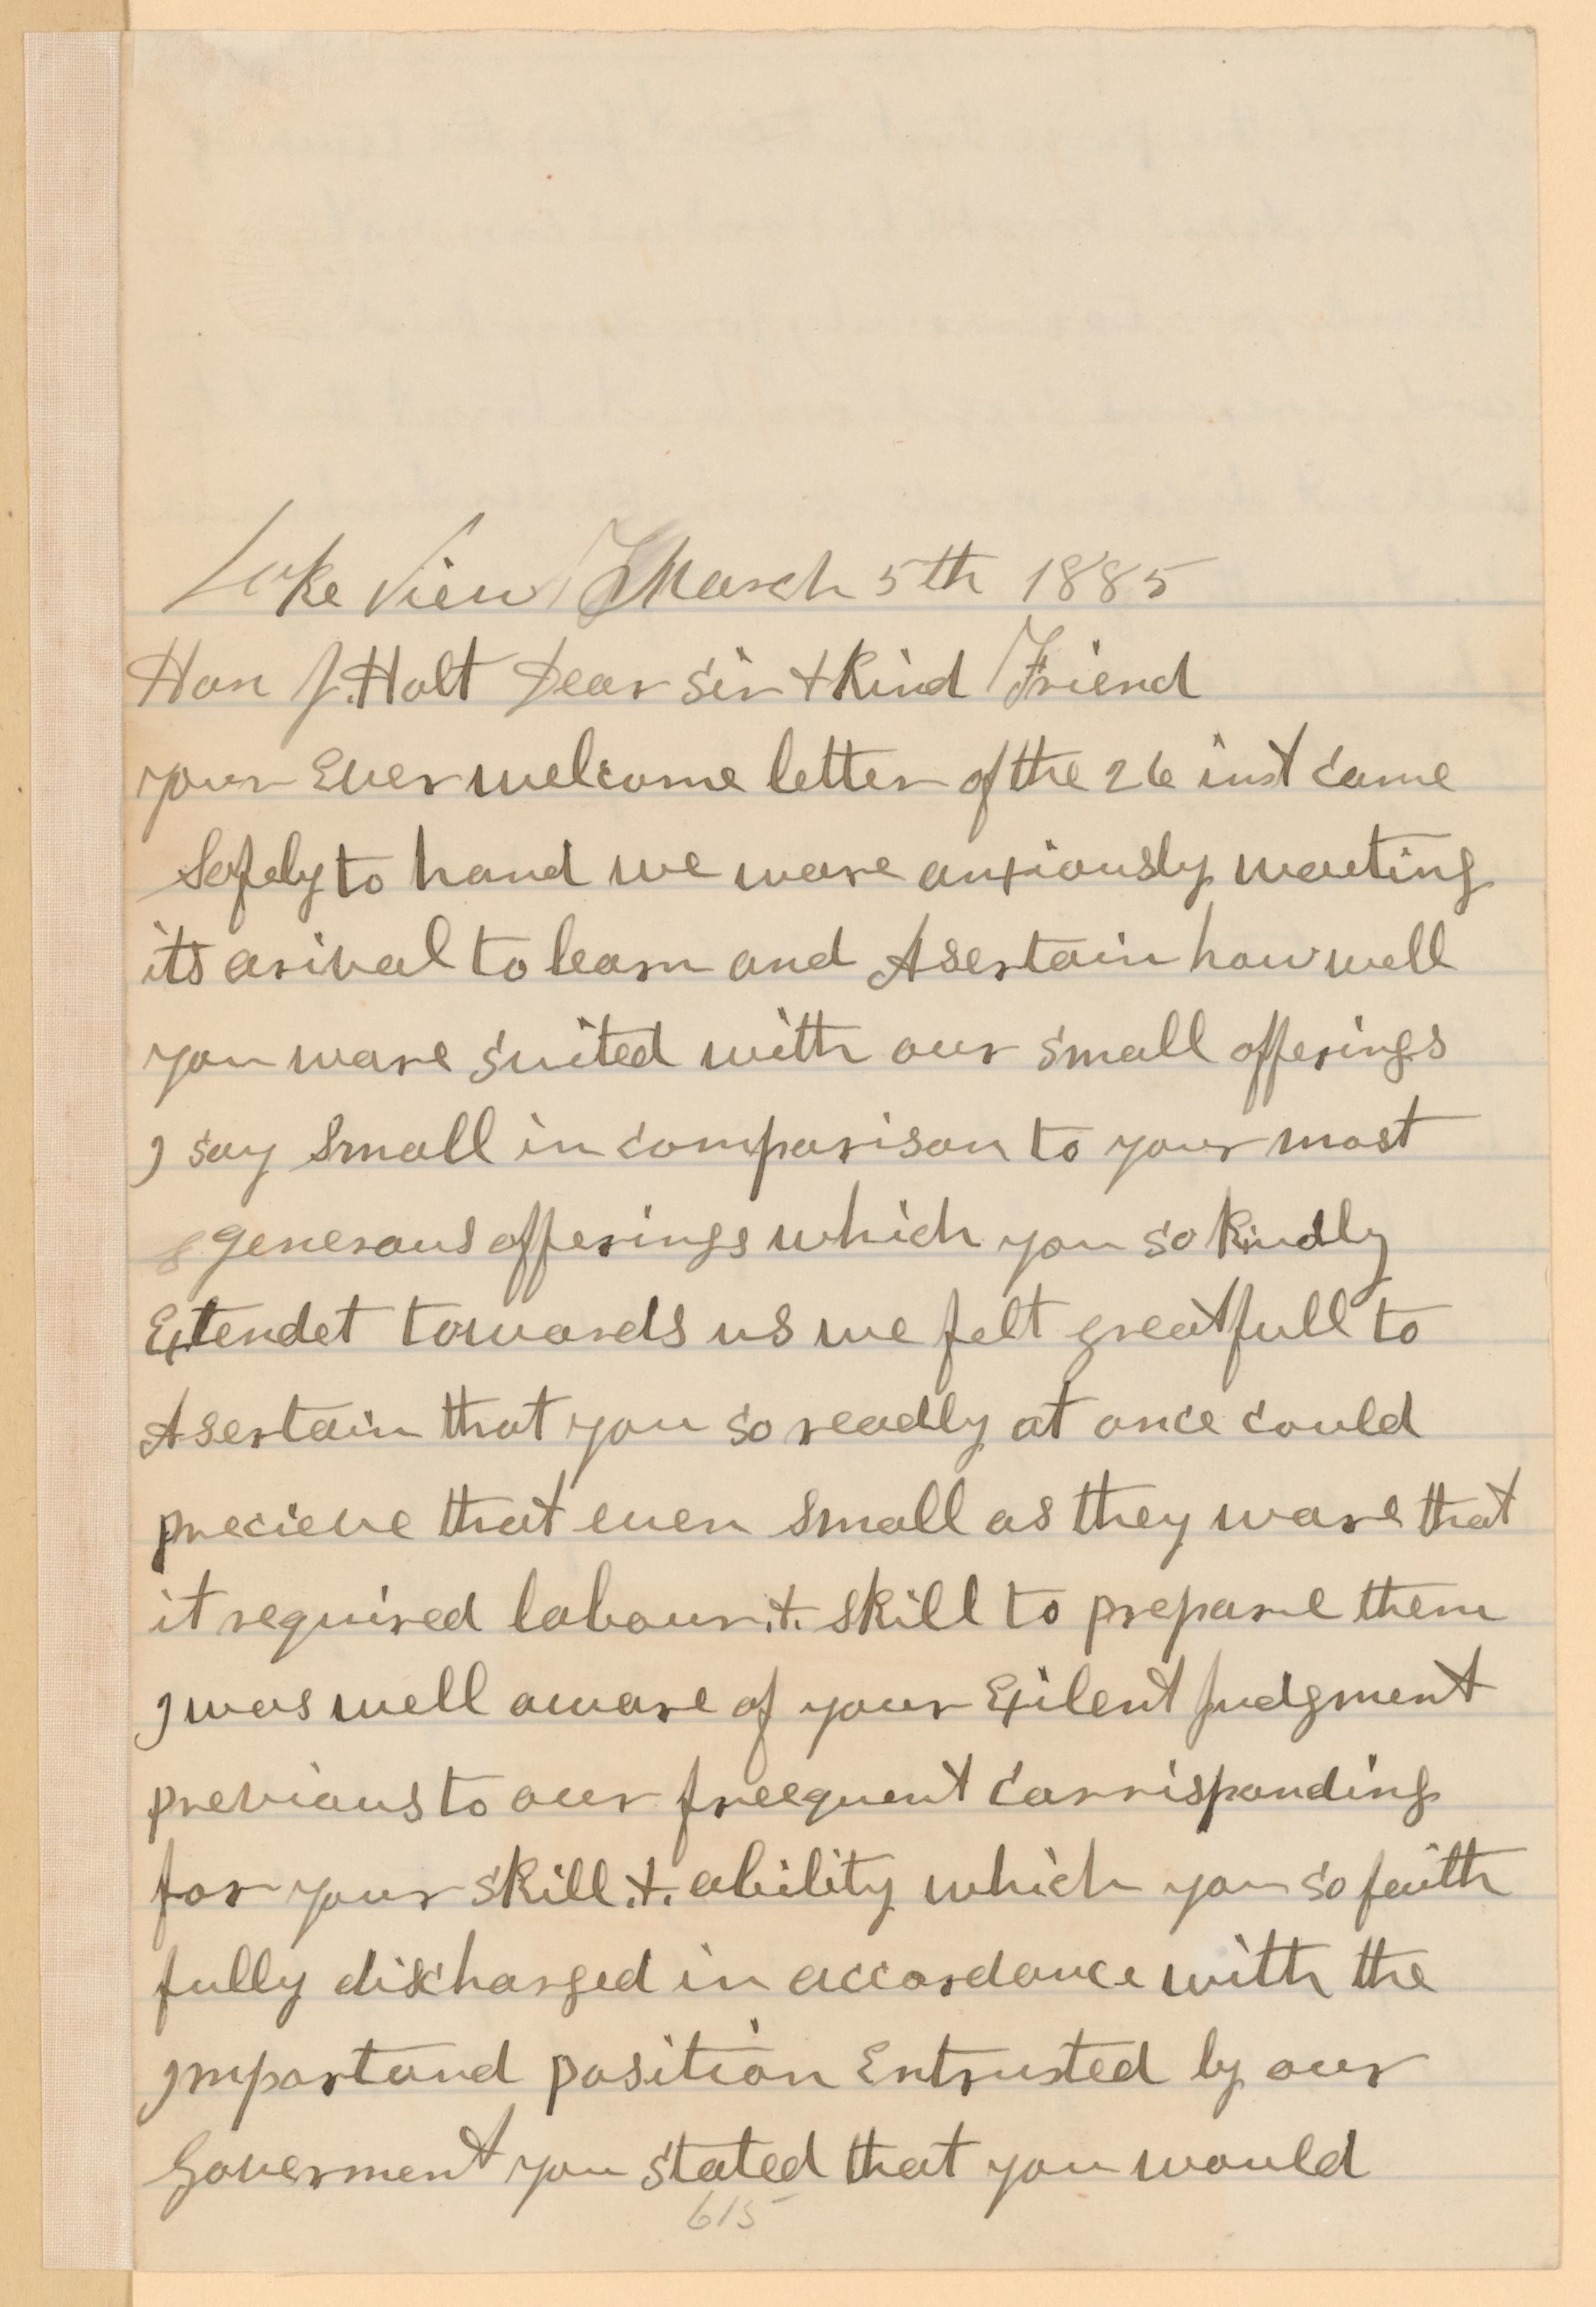 Lake View March 5th 1885
Hon J. Holt Dear Sir + Kind Friend
your Ever welcome letter of the 26 inst came
Safely to hand we ware anxiously waiting
its arival to learn and Asertain how well
you ware suited with our small offerings
I say Small in comparison to your most
generous offerings which you so Kindly
Extendet towards us we felt greatfull to
Asertain that you so readly at once could
precieve that even Small as they ware that
it required labour .+. Skill to prepare them
I was well aware of your Exilent judgment
previous to our freequent Corrisponding
for your skill .+. ability which you so faith
fully discharged in accordance with the
Importand position Entrusted by our
Goverment you stated that you would
615